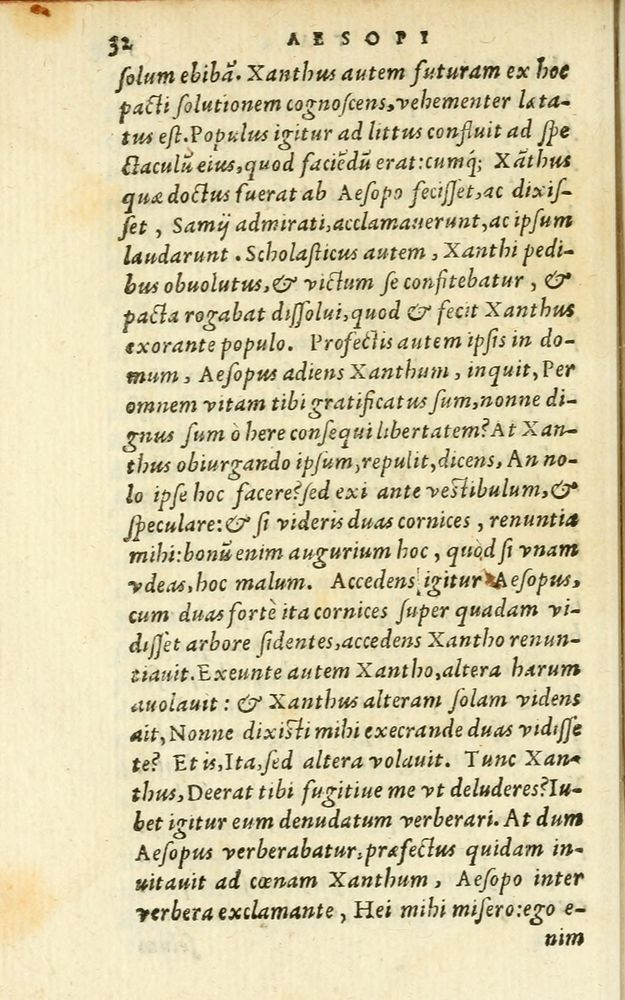 32 AESOPI
ſolum ebibã. Xanthus autem futuram ex hoc
pacti ſolutionem cognoſcens, vehementer læta-
tus eſt. Populus igitur ad littus confluit ad ſpe
ctaculũ eius, quod faciẽdũ erat: cumq́; Xãthus
quæ doctus fuerat ab Aeſopo feciſſet, ac dixiſ-
ſet, Samij admirati, acclamauerunt, ac ipſum
laudarunt. Scholaſticus autem, Xanthi pedi-
bus obuolutus, & victum ſe confitebatur, &
pacta rogabat diſſolui, quod & fecit Xanthus
exorante populo. Profectis autem ipſis in do-
mum, Aeſopus adiens Xanthum, inquit, Per
omnem vitam tibi gratificatus ſum, nonne di-
gnus ſum ò here conſequi libertatem? At Xan-
thus obiurgando ipſum, repulit, dicens, An no-
lo ipſe hoc facere? ſed exi ante veſtibulum, &
ſpeculare: & ſi videris duas cornices, renuntia
mihi: bonũ enim augurium hoc, quòd ſi vnam
vdeas, hoc malum. Accedens igitur Aeſopus,
cum duas fortè ita cornices ſuper quadam vi-
diſſet arbore ſidentes, accedens Xantho renun-
tiauit. Exeunte autem Xantho, altera harum
auolauit: & Xanthus alteram ſolam videns
ait, Nonne dixiſti mihi execrande duas vidiſſe
te? Et is, Ita, ſed altera volauit. Tunc Xan-
thus, Deerat tibi fugitiue me vt deluderes? Iu-
bet igitur eum denudatum verberari. At dum
Aeſopus verberabatur, præfectus quidam in-
uitauit ad cœnam Xanthum, Aeſopo inter
verbera exclamante, Hei mihi miſero: ego e-
nim